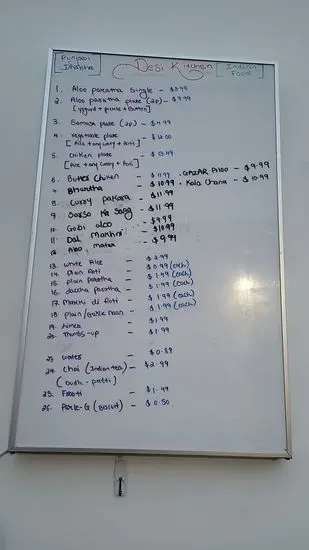 Punjabi
Dhabha
Desi Kitchen
Indian
Food
1. Aloo paratha Single - $3.99
2. Aloo parastha plate (2p) - $9.99
[yggurd + pickle + Butter]
3. Samosa plate (2p) - $4.99
4. vegetable plate - $12.00
[Rice + any curry + Roti]
5. Chiken plate - $13.49
[Rice + any curry + Roti]
6. Butter Chiken - $11.99
GAZAR ALOO - $9.99
7. Bhartha - $10.99
Kala Chana - $10.99
8. Curry pakora - $11.99
9. Sarso Ka Saag - $11.99
10. Gobi aloo - $9.99
11. Dal Makhni - $10.99
12. Aloo mater - $9.99
13. white Rice - $3.99
14. plain Roti - $0.99 (each)
15. plain paratha - $1.99 (each)
16. laccha paratha - $1.99 (each)
17. Makki di Roti - $1.99 (each)
18. plain/Garlic naan - $1.99 (each)
19. Limca - $1.99
20. Thums-up - $1.99
23. water - $0.89
24. Chai (Indian tea) - $2.99
(Dudh - patti)
25. Frooti - $1.49
26. Parle-G (Biscuit) - $0.50